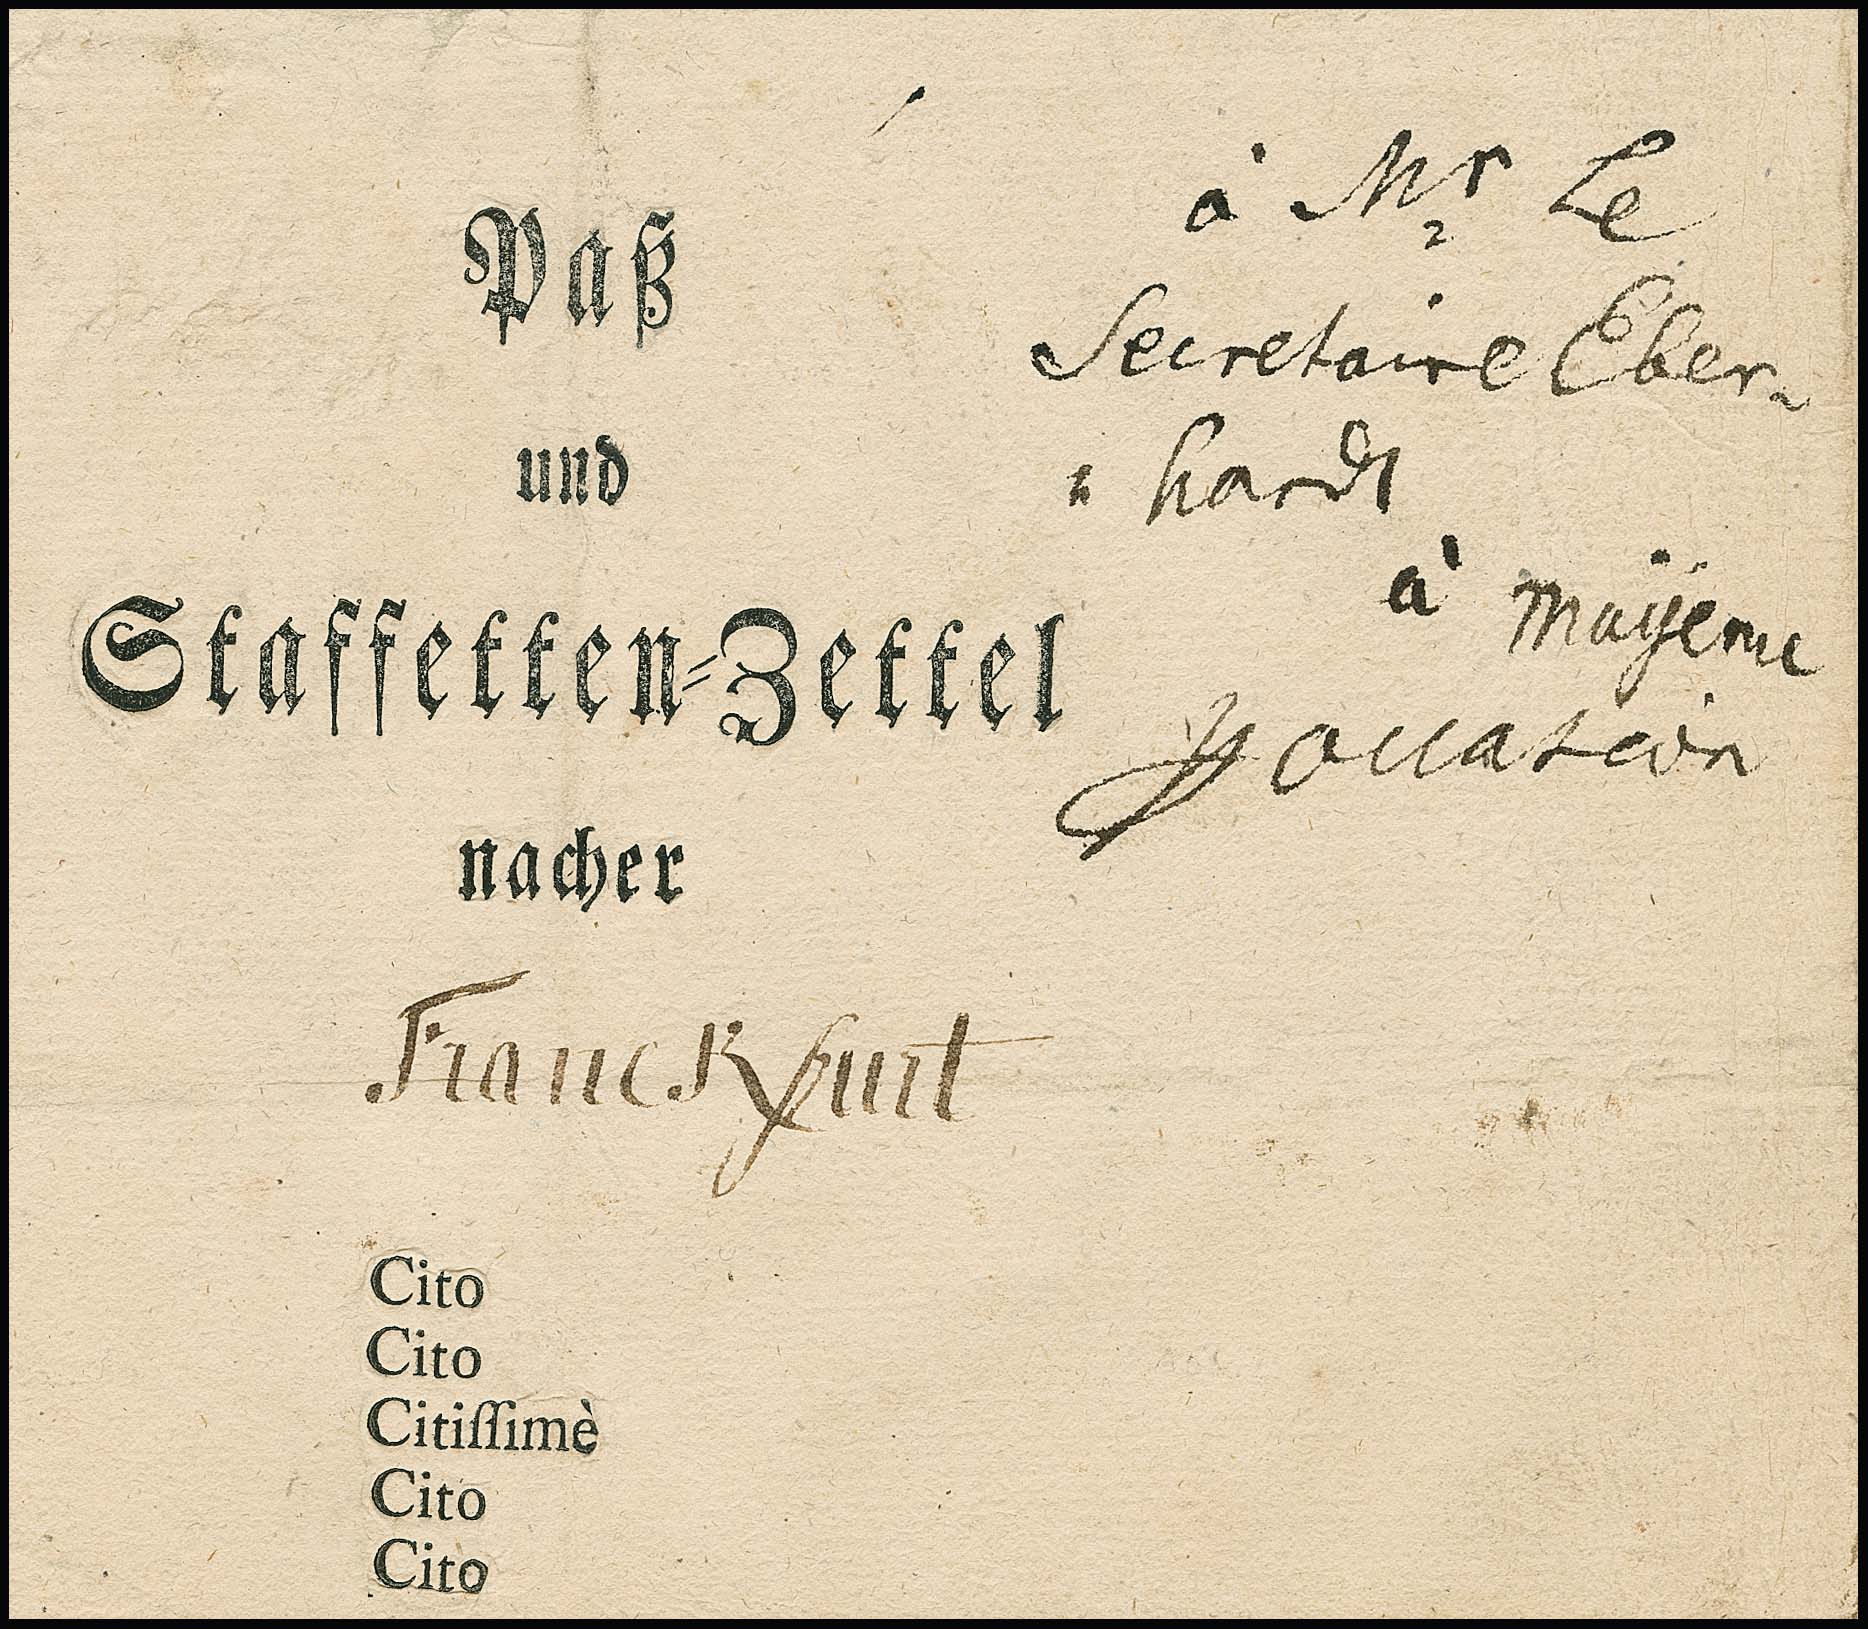 Paß
und
Staffetten-Zettel
nacher
Franckfurt
Cito
Cito
Citiſſimè
Cito
Cito
à Mr Le
Secretaire Eber-
hardt
à